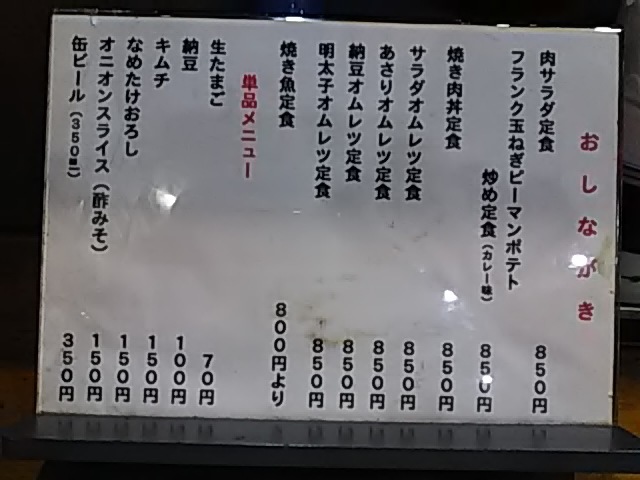 おしながき
肉サラダ定食 850円
フランク玉ねぎピーマンポテト
炒め定食(カレー味) 850円
焼き肉丼定食 850円
サラダオムレツ定食 850円
あさりオムレツ定食 850円
納豆オムレツ定食 850円
明太子オムレツ定食 850円
焼き魚定食 800円より
単品メニュー
生たまご 70円
納豆 100円
キムチ 150円
なめたけおろし 150円
オニオンスライス(酢みそ) 150円
缶ビール(350㎖) 350円